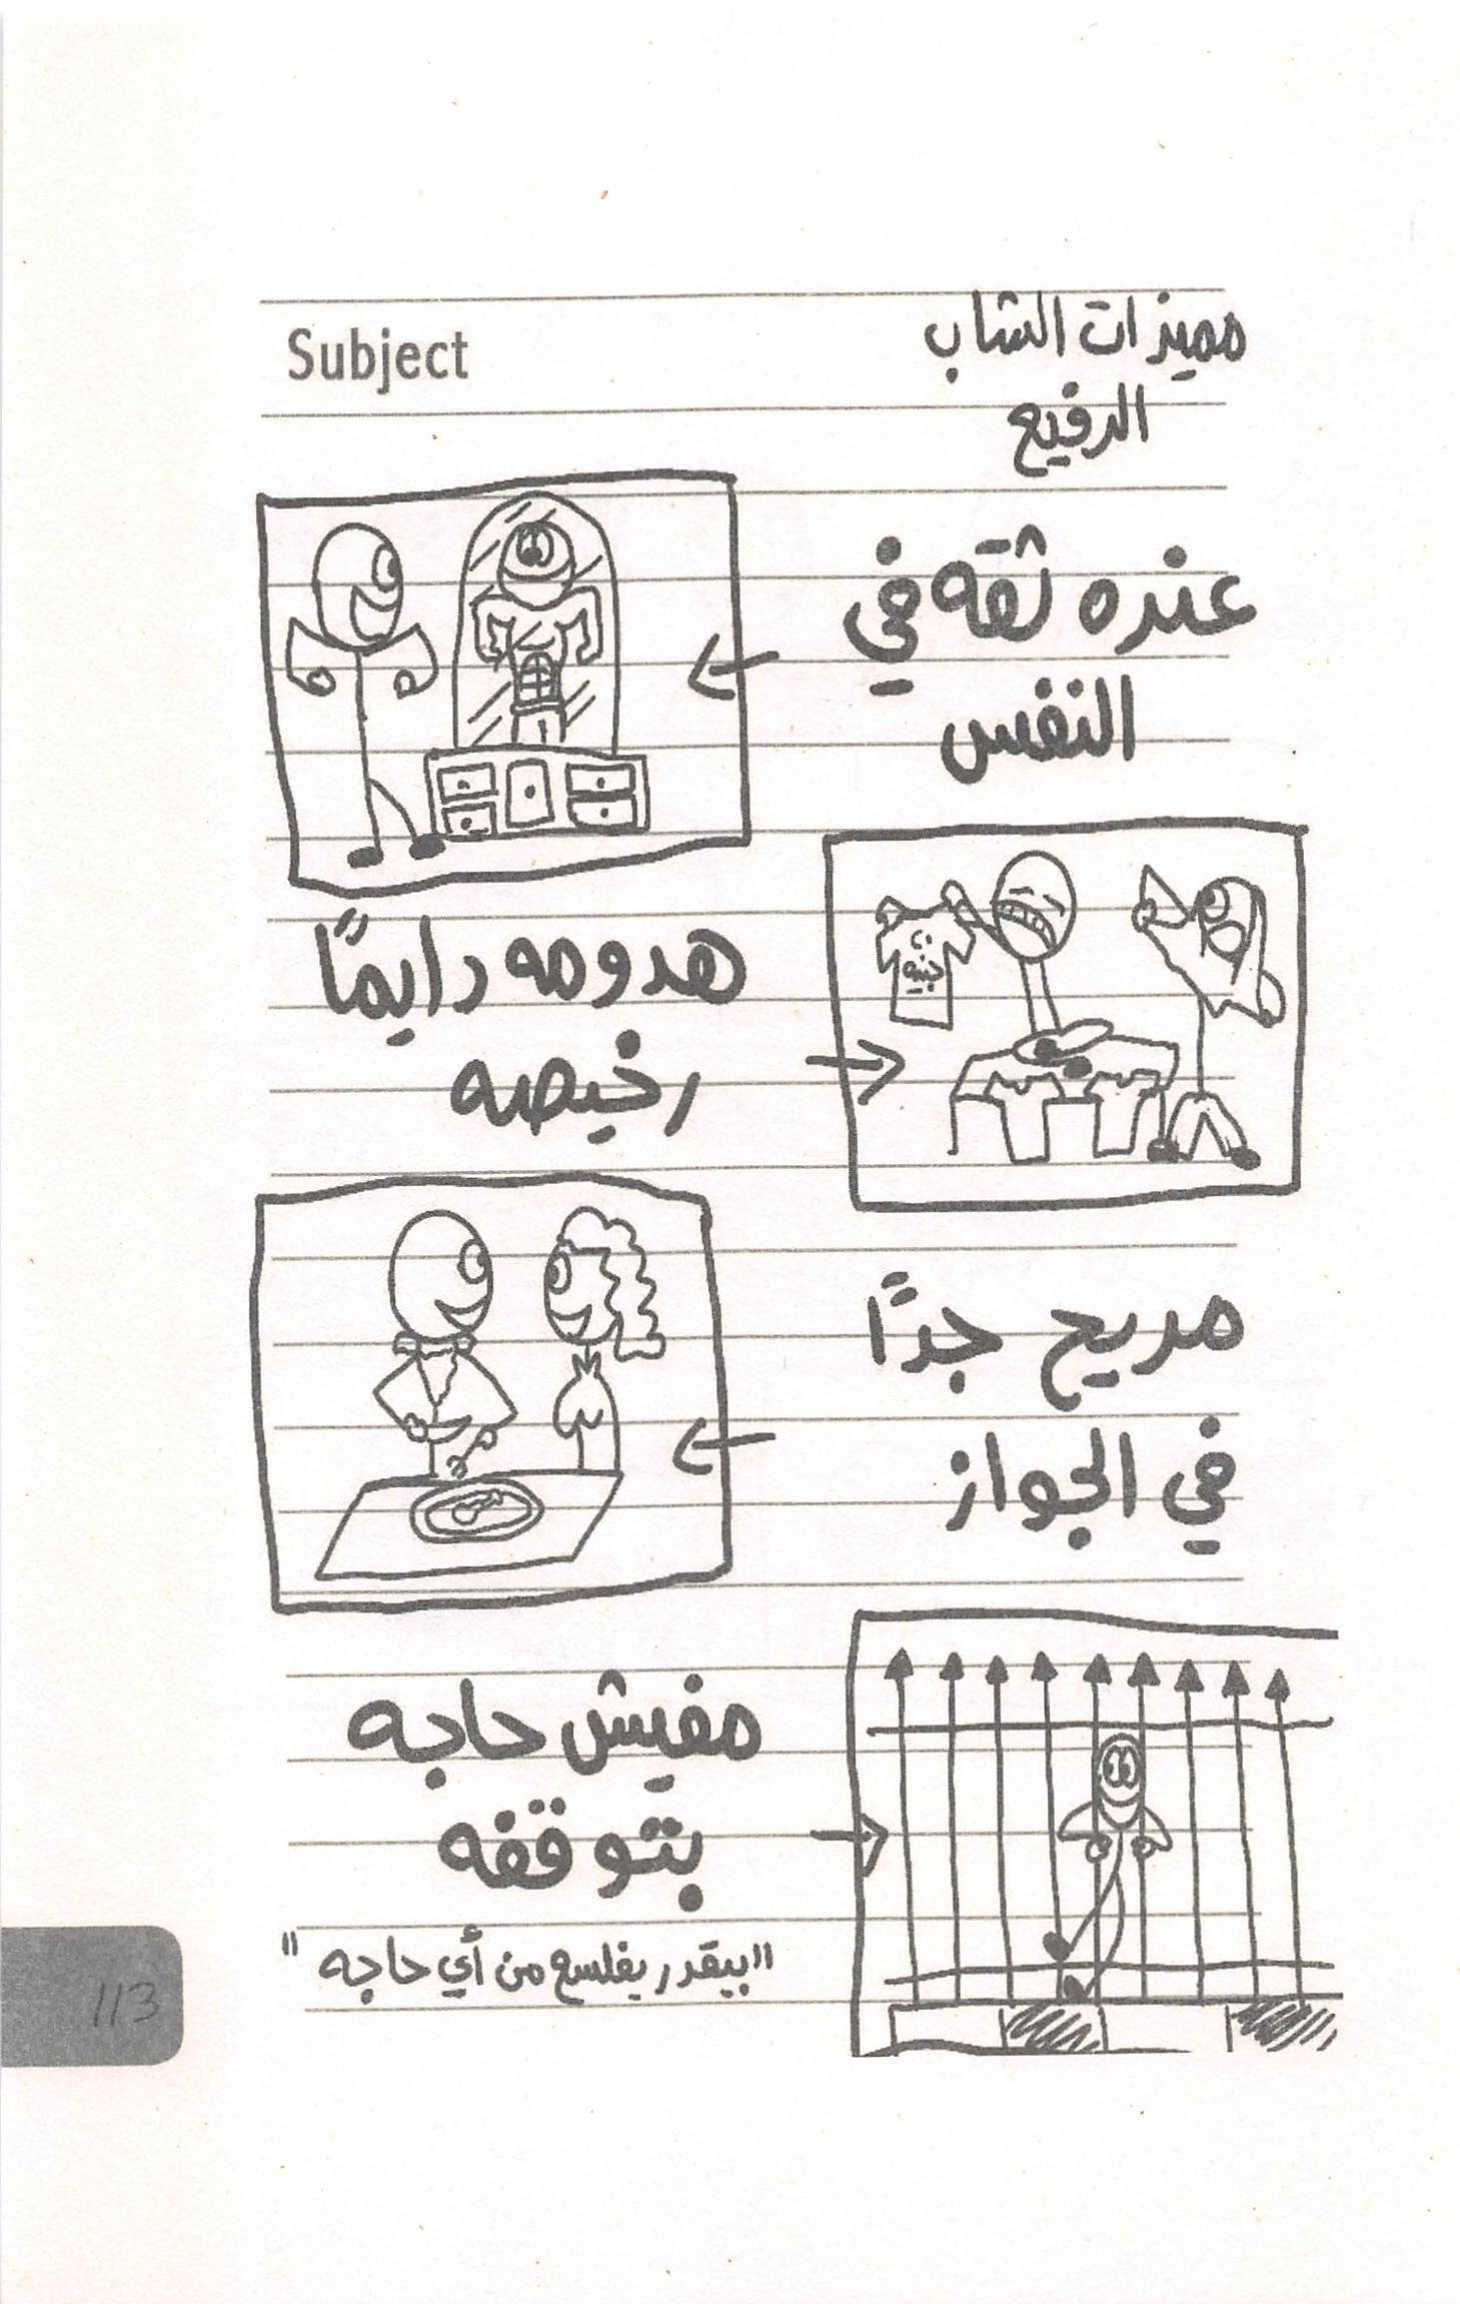 Subject
مميزات الشاب
الرفيع
عنده ثقه في
النفس
هدومه دايمًا
رخيصه
جنيه
مريح جدًا
في الجواز
مفيش حاجه
بتوقفه
"بيقدر يفلسع من أي حاجه"
113